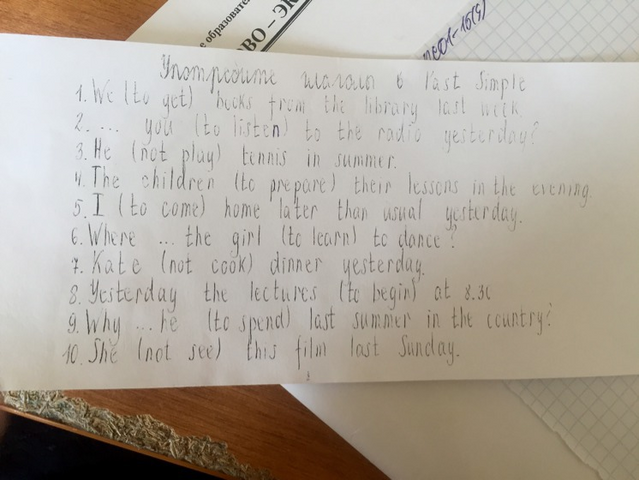 е образовате
ВО – ЭК
Употребите глаголы в Past Simple
1. We (to get) books from the library last week.
2. ... you (to listen) to the radio yesterday?
3. He (not play) tennis in summer.
4. The children (to prepare) their lessons in the evening.
5. I (to come) home later than usual yesterday.
6. Where ... the girl (to learn) to dance?
7. Kate (not cook) dinner yesterday.
8. Yesterday the lectures (to begin) at 8.30
9. Why ... he (to spend) last summer in the country?
10. She (not see) this film last Sunday.